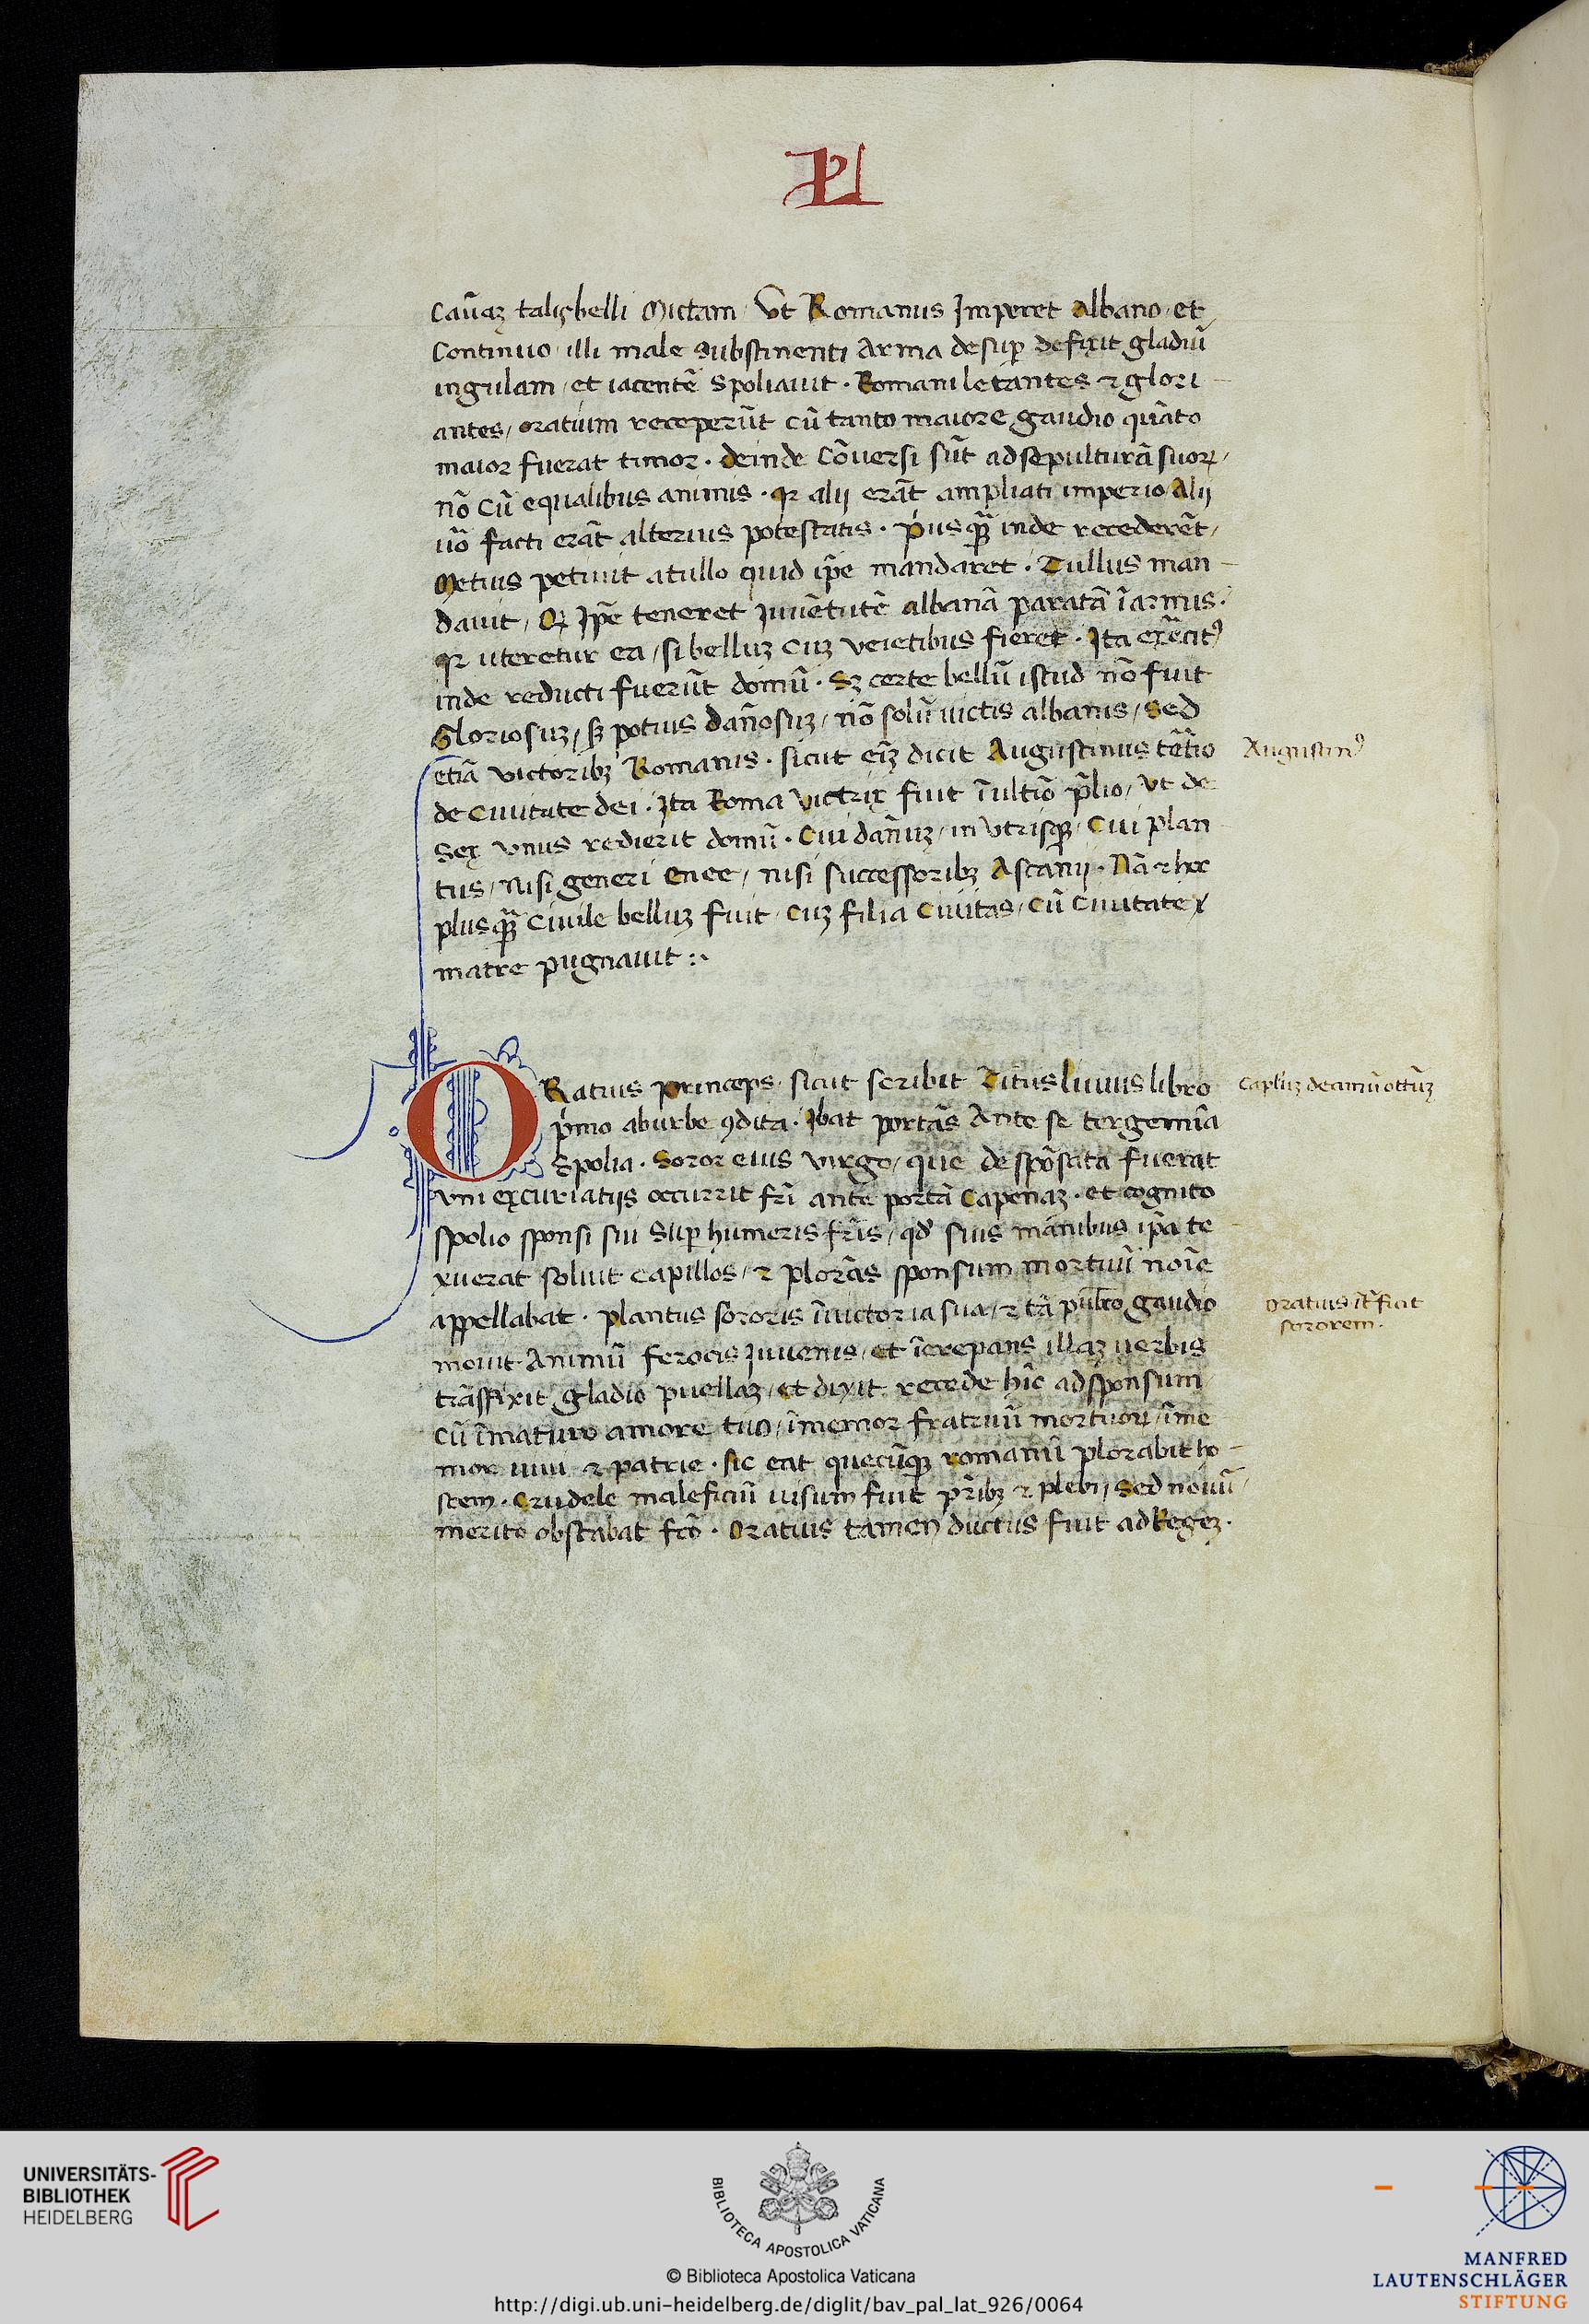 PL
Cãuaz talis belli Dictam / Ut Romanus Imperet Albano / et
Continuo illi male Substinenti Arma desup defixit gladiũ
ingulam / et iacentẽ Spoliauit . Romani letantes & glori
antes / oratium receperũt cũ tanto maiore gaudio quãto
maior fuerat timor . deinde Cõuersi sũt ad sepulturã suoꝝ /
nõ Cũ equalibus animis . qꝛ alij erãt ampliati imperio / Alij
uõ facti erãt alterius potestatis . pius qꝫ̃ inde recederẽt /
Metius petiuit a tullo quid ip̃e mandaret . Tullus man
dauit / Qꝛ Ip̃e teneret Iuuẽtutẽ albanã paratã ĩ armis .
qꝛ uteretur ea / si belluꝫ Cuꝫ veietibus fieret . Ita exẽcitꝰ
inde reducti fuerũt domũ . Sꝫ certe bellũ istud nõ fuit
Gloriosuꝫ / sꝫ potius dañosuꝫ / nõ solũ uictis albanis / Sed
etiã victoribꝫ Romanis . sicut eĩꝫ dicit Augustinus tẽtio
de Ciuitate dei . Ita Roma Victrix fuit ĩ ultiõ p̃lio / Ut de
Sex vnus redierit domũ . Cui dañuꝫ / in vtrisqꝫ / Cui plan
tus / Nisi generi Enee / nisi successoribꝫ Ascanij . Nã & hec
plusqꝫ̃ Ciuile belluꝫ fuit / Cuꝫ filia Ciuitas / Cũ Ciuitate
matre pugnauit :~
Augustinꝰ
ORatius princeps / sicut scribit Titus liuius libro
p̃mo ab urbe ꝯdita . Ibat portãs Ante se tergemĩa
Spolia . Soror eius virgo / que despõsata fuerat
vni ex curiatijs occurrit fr̃i ante portã Capenaꝫ . et cognito
spolio sponsi sui Sup humeris fr̃is / qd̃ suis manibus ip̃a te
xuerat soluit Capillos / & plorãs sponsum mortuũ noĩe
appellabat . plantus sororis ĩ uictoria sua / & tã pub̃co gaudio
mouit Animũ ferocis Iuuenis / et ĩcrepans illaꝫ uerbis
trãsfixit gladio puellaꝫ / et dixit recede hĩc ad sponsum
cũ ĩmaturo amore tuo / ĩmemor fratruũ mortuoꝝ / ĩme
mor uiui & patrie . sic eat quecũqꝫ romanũ plorabit ho
stem . Crudele maleficiũ uisum fuit p̃ribꝫ & plebi / Sed nouũ /
merito obstabat fcõ . Oratius tamen ductus fuit ad Regeꝫ .
Capl̃uꝫ decimũ ottũꝫ
Oratius ĩt̃ficit
sororem .
UNIVERSITÄTS-
BIBLIOTHEK
HEIDELBERG
BIBLIOTECA APOSTOLICA VATICANA
© Biblioteca Apostolica Vaticana
http://digi.ub.uni-heidelberg.de/diglit/bav_pal_lat_926/0064
MANFRED
LAUTENSCHLÄGER
STIFTUNG